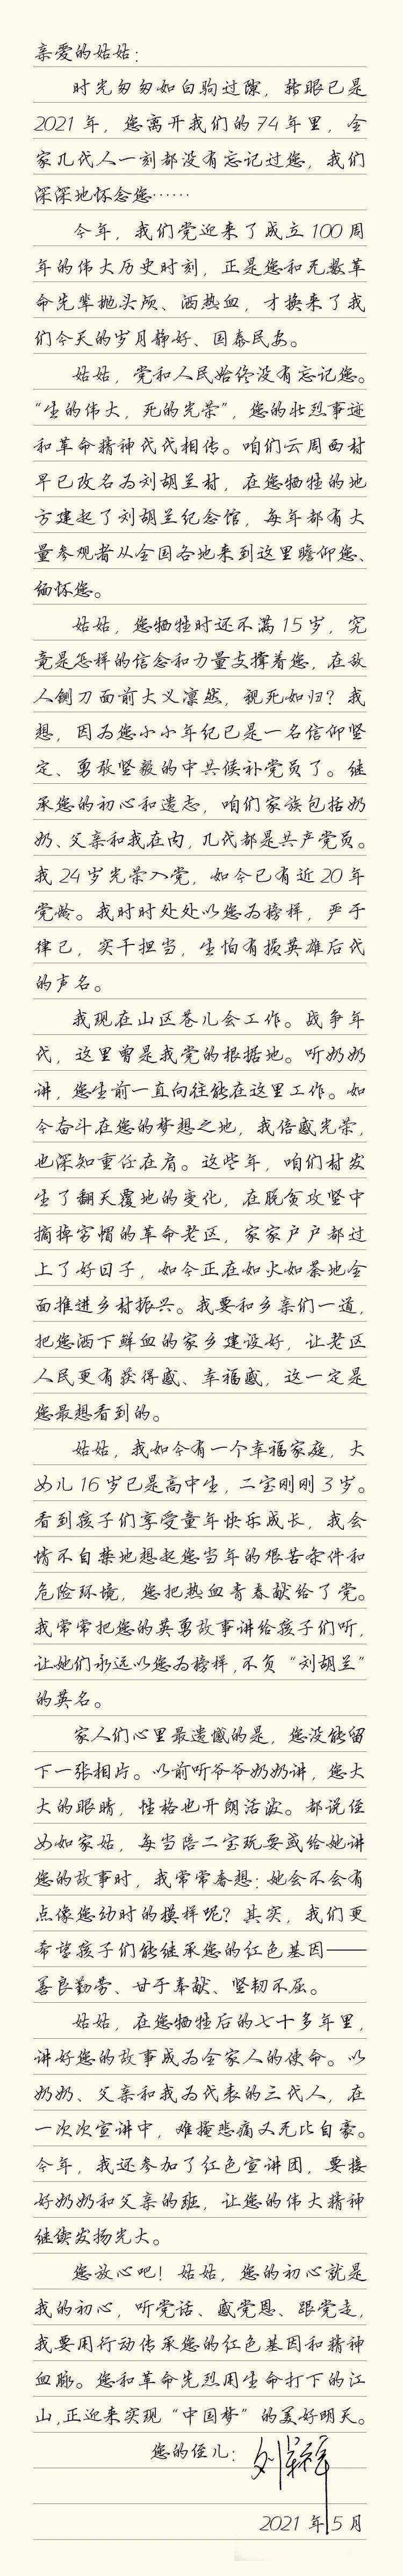 亲爱的姑姑：
时光匆匆如白驹过隙，转眼已是
2021年，您离开我们的74年里，全
家几代人一刻都没有忘记过您，我们
深深地怀念您……
今年，我们党迎来了成立100周
年的伟大历史时刻，正是您和无数革
命先辈抛头颅、洒热血，才换来了我
们今天的岁月静好、国泰民安。
姑姑，党和人民始终没有忘记您。
“生的伟大，死的光荣”，您的壮烈事迹
和革命精神代代相传。咱们云周西村
早已改名为刘胡兰村，在您牺牲的地
方建起了刘胡兰纪念馆，每年都有大
量参观者从全国各地来到这里瞻仰您、
缅怀您。
姑姑，您牺牲时还不满15岁，究
竟是怎样的信念和力量支撑着您，在敌
人铡刀面前大义凛然，视死如归？我
想，因为您小小年纪已是一名信仰坚
定、勇敢坚毅的中共候补党员了。继
承您的初心和遗志，咱们家族包括奶
奶、父亲和我在内，几代都是共产党员。
我24岁光荣入党，如今已有近20年
党龄。我时时处处以您为榜样，严于
律己，实干担当，生怕有损英雄后代
的声名。
我现在山区苍儿会工作。战争年
代，这里曾是我党的根据地。听奶奶
讲，您生前一直向往能在这里工作。如
今奋斗在您的梦想之地，我倍感光荣，
也深知重任在肩。这些年，咱们村发
生了翻天覆地的变化，在脱贫攻坚中
摘掉穷帽的革命老区，家家户户都过
上了好日子，如今正在如火如荼地全
面推进乡村振兴。我要和乡亲们一道，
把您洒下鲜血的家乡建设好，让老区
人民更有获得感、幸福感，这一定是
您最想看到的。
姑姑，我如今有一个幸福家庭，大
女儿16岁已是高中生，二宝刚刚3岁。
看到孩子们享受童年快乐成长，我会
情不自禁地想起您当年的艰苦条件和
危险环境，您把热血青春献给了党。
我常常把您的英勇故事讲给孩子们听，
让她们永远以您为榜样，不负“刘胡兰”
的英名。
家人们心里最遗憾的是，您没能留
下一张相片。以前听爷爷奶奶讲，您大
大的眼睛，性格也开朗活泼。都说侄
女如家姑，每当陪二宝玩耍或给她讲
您的故事时，我常常春想：她会不会有
点像您幼时的模样呢？其实，我们更
希望孩子们能继承您的红色基因——
善良勤劳、甘于奉献、坚韧不屈。
姑姑，在您牺牲后的七十多年里，
讲好您的故事成为全家人的使命。以
奶奶、父亲和我为代表的三代人，在
一次次宣讲中，难掩悲痛又无比自豪。
今年，我还参加了红色宣讲团，要接
好奶奶和父亲的班，让您的伟大精神
继续发扬光大。
您放心吧！姑姑，您的初心就是
我的初心，听党话、感党恩、跟党走，
我要用行动传承您的红色基因和精神
血脉。您和革命先烈用生命打下的江
山，正迎来实现“中国梦”的美好明天。
您的侄儿：
2021年5月